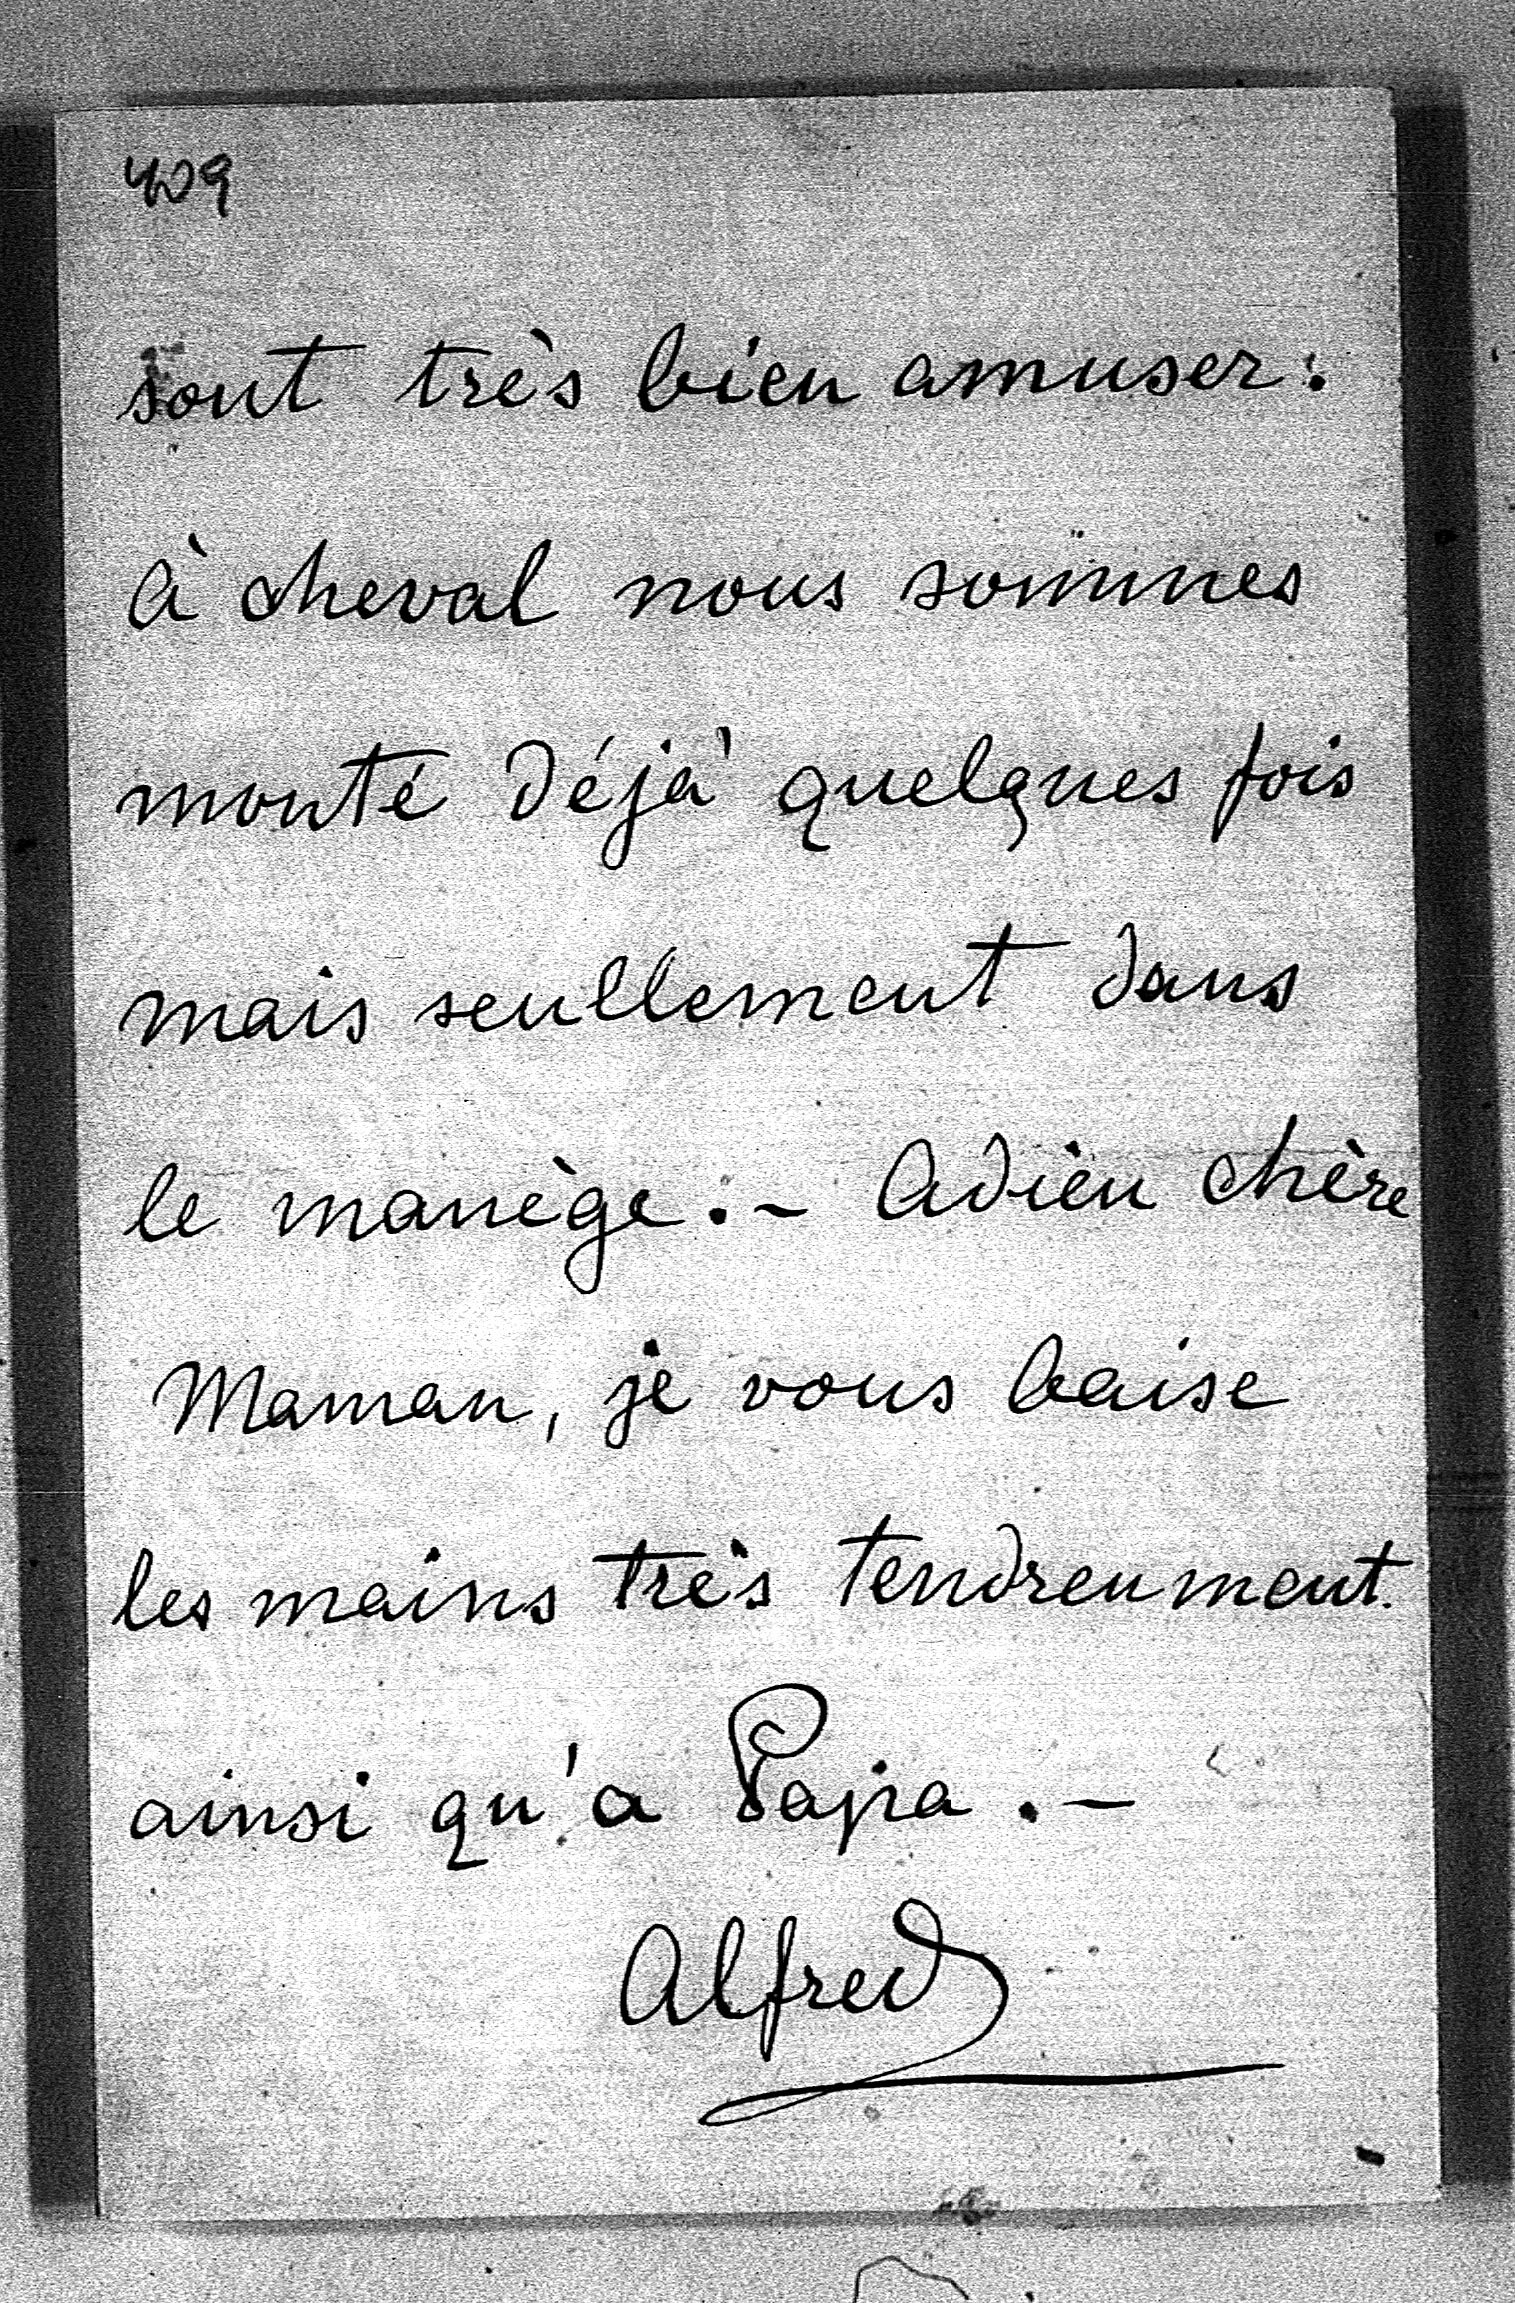 409
sont très bien amuser.
à cheval nous sommes
monté déjà quelques fois
mais seullement dans
le manège. - Adieu chère
Maman, je vous baise
les mains très tendreument.
ainsi qu'a Papa. -
Alfred